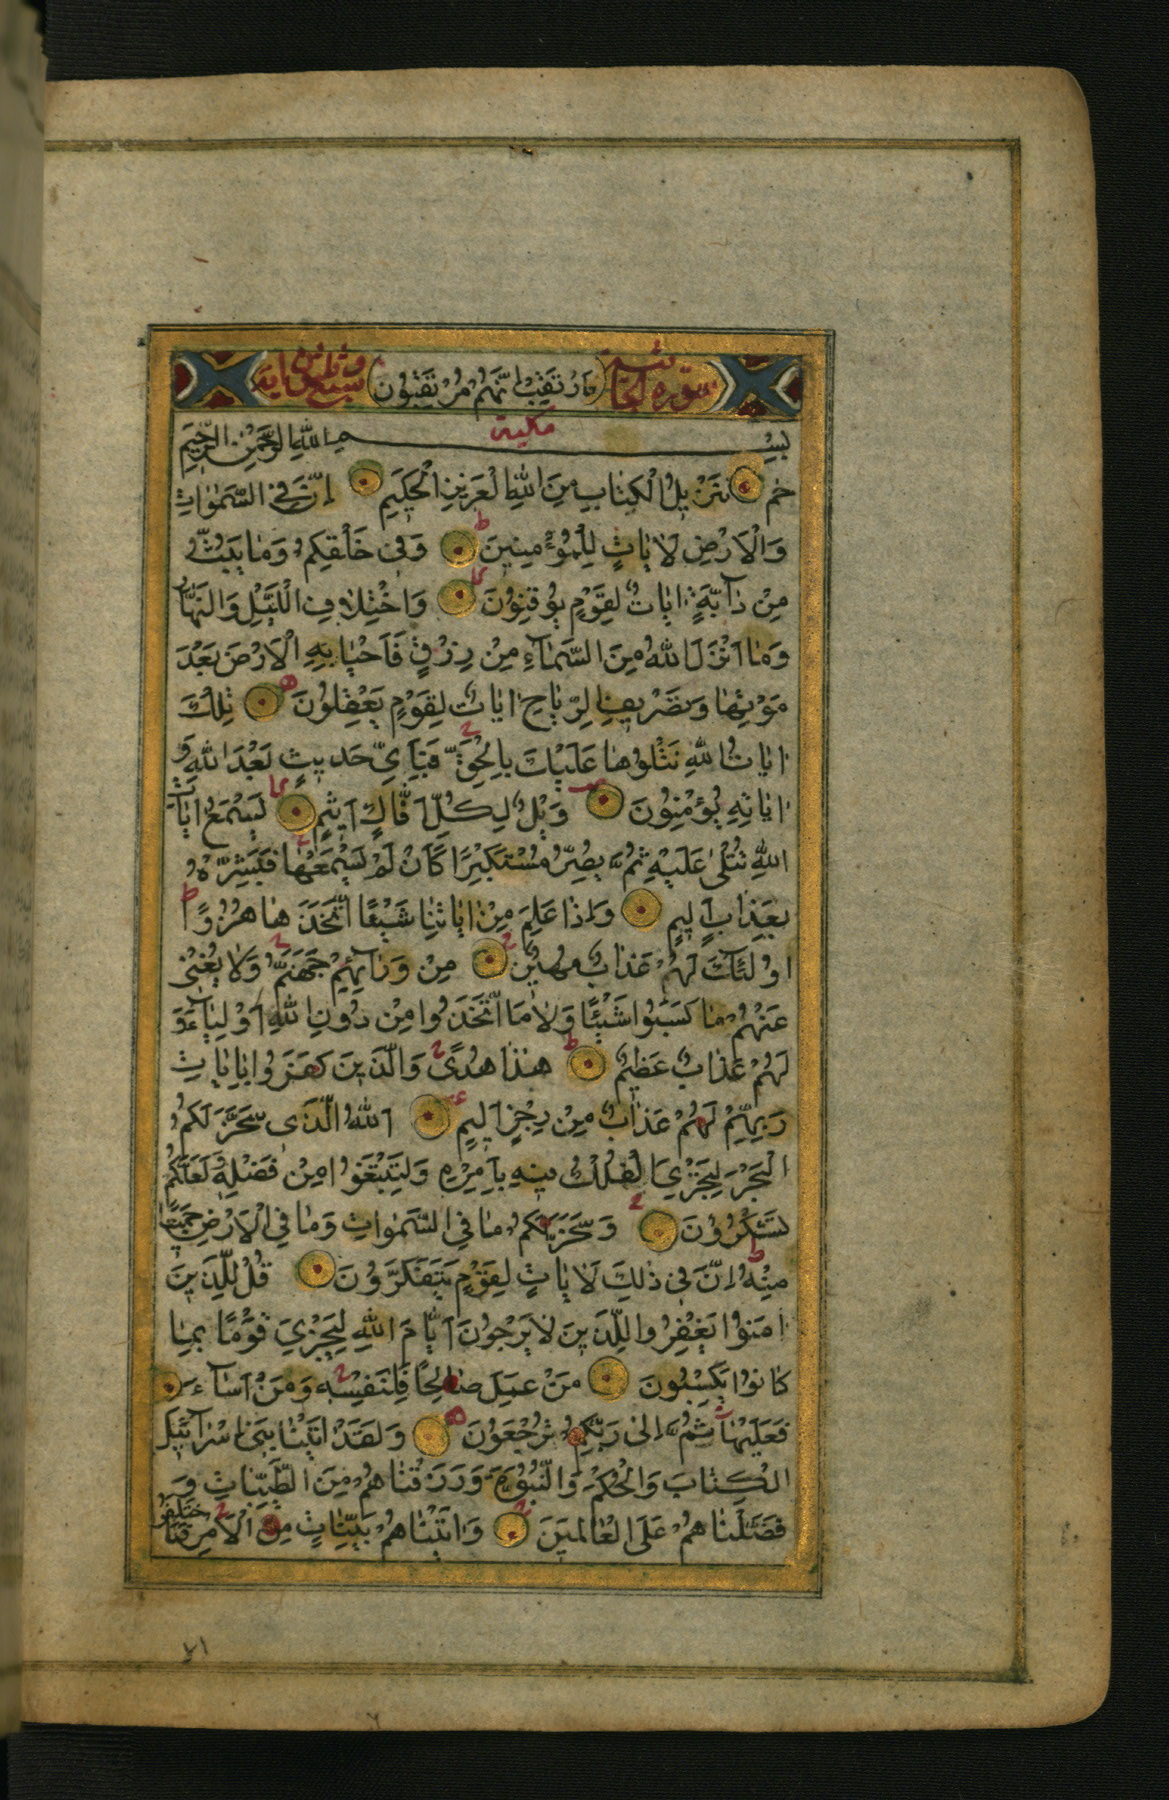 سورة الجاثية فارتقب انهم مرتقبون وثلثون اية
مكية
بسم الله الرحمن الرحيم
حم تنزيل الكتاب من الله العزيز الحكيم ان في السموات
والارض لايات للمؤمنين وفي خلقكم وما يبث
من دابة ايات لقوم يوقنون واختلاف الليل والنهار
وما انزل الله من السماء من رزق فاحيا به الارض بعد
موتها وتصريف الرياح ايات لقوم يعقلون تلك
ايات الله نتلوها عليك بالحق فباي حديث بعد الله و
اياته يؤمنون ويل لكل افاك اثيم يسمع ايات
الله تتلى عليه ثم يصر مستكبرا كان لم يسمعها فبشره
بعذاب اليم واذا علم من اياتنا شيئا اتخذها هزوا
اولئك لهم عذاب مهين من ورائهم جهنم ولا يغني
عنهم ما كسبوا شيئا ولا ما اتخذوا من دون الله اولياء و
لهم عذاب عظيم هذا هدى والذين كفروا بايات
ربهم لهم عذاب من رجز اليم الله الذي سخر لكم
البحر لتجري الفلك فيه بامره ولتبتغوا من فضله ولعلكم
تشكرون وسخر لكم ما في السموات وما في الارض جميعا
منه ان في ذلك لايات لقوم يتفكرون قل للذين
امنوا يغفروا للذين لا يرجون ايام الله ليجزي قوما بما
كانوا يكسبون من عمل صالحا فلنفسه ومن اساء
فعليها ثم الى ربكم ترجعون ولقد اتينا بني اسرائيل
الكتاب والحكم والنبوة ورزقناهم من الطيبات و
فضلناهم على العالمين واتيناهم بينات من الامر فما
اختلفوا
٢١